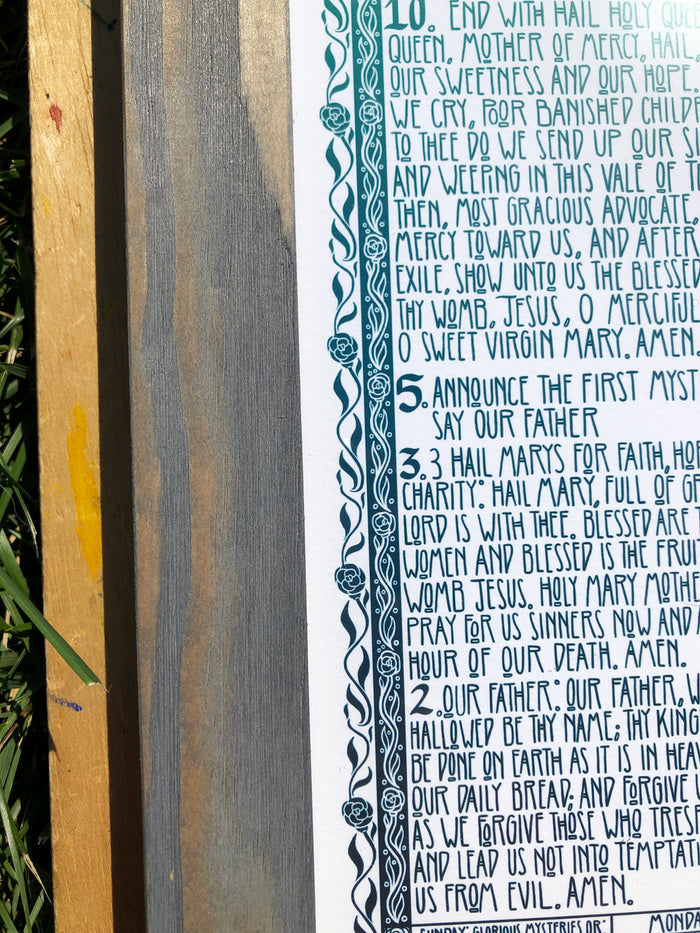 10. END WITH HAIL HOLY QUE
QUEEN, MOTHER OF MERCY, HAIL,
OUR SWEETNESS AND OUR HOPE.
WE CRY, POOR BANISHED CHILD
TO THEE DO WE SEND UP OUR SI
AND WEEPING IN THIS VALE OF T
THEN, MOST GRACIOUS ADVOCATE,
MERCY TOWARD US, AND AFTER
EXILE, SHOW UNTO US THE BLESSED
THY WOMB, JESUS, O MERCIFUL
O SWEET VIRGIN MARY. AMEN.
5. ANNOUNCE THE FIRST MYST
SAY OUR FATHER
3. 3 HAIL MARYS FOR FAITH, HOP
CHARITY: HAIL MARY, FULL OF GR
LORD IS WITH THEE. BLESSED ARE T
WOMEN AND BLESSED IS THE FRUI
WOMB JESUS. HOLY MARY MOTHE
PRAY FOR US SINNERS NOW AND
HOUR OF OUR DEATH. AMEN.
2. OUR FATHER: OUR FATHER, W
HALLOWED BE THY NAME; THY KING
BE DONE ON EARTH AS IT IS IN HEAV
OUR DAILY BREAD; AND FORGIVE U
AS WE FORGIVE THOSE WHO TRESP
AND LEAD US NOT INTO TEMPTATI
US FROM EVIL. AMEN.
SUNDAY: GLORIOUS MYSTERIES OR: MONDA